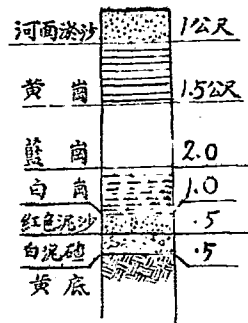 河面淤沙 1公尺
黄岗 1.5公尺
藍岗 2.0
白岗 1.0
红色泥沙 .5
白泥碴 .5
黄底